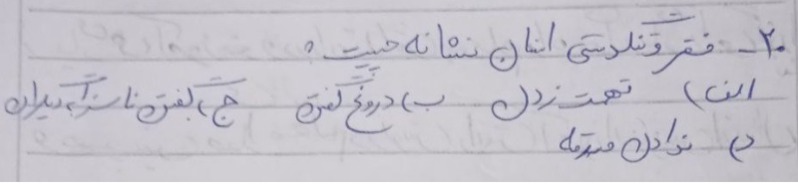 ۲۰- فقر و تنگدستی انسان نشانه چیست ؟
الف) تهمت زدن ب) دروغ گفتن ج) گفتن ناسزا به دیگران
د) ندادن صدقه